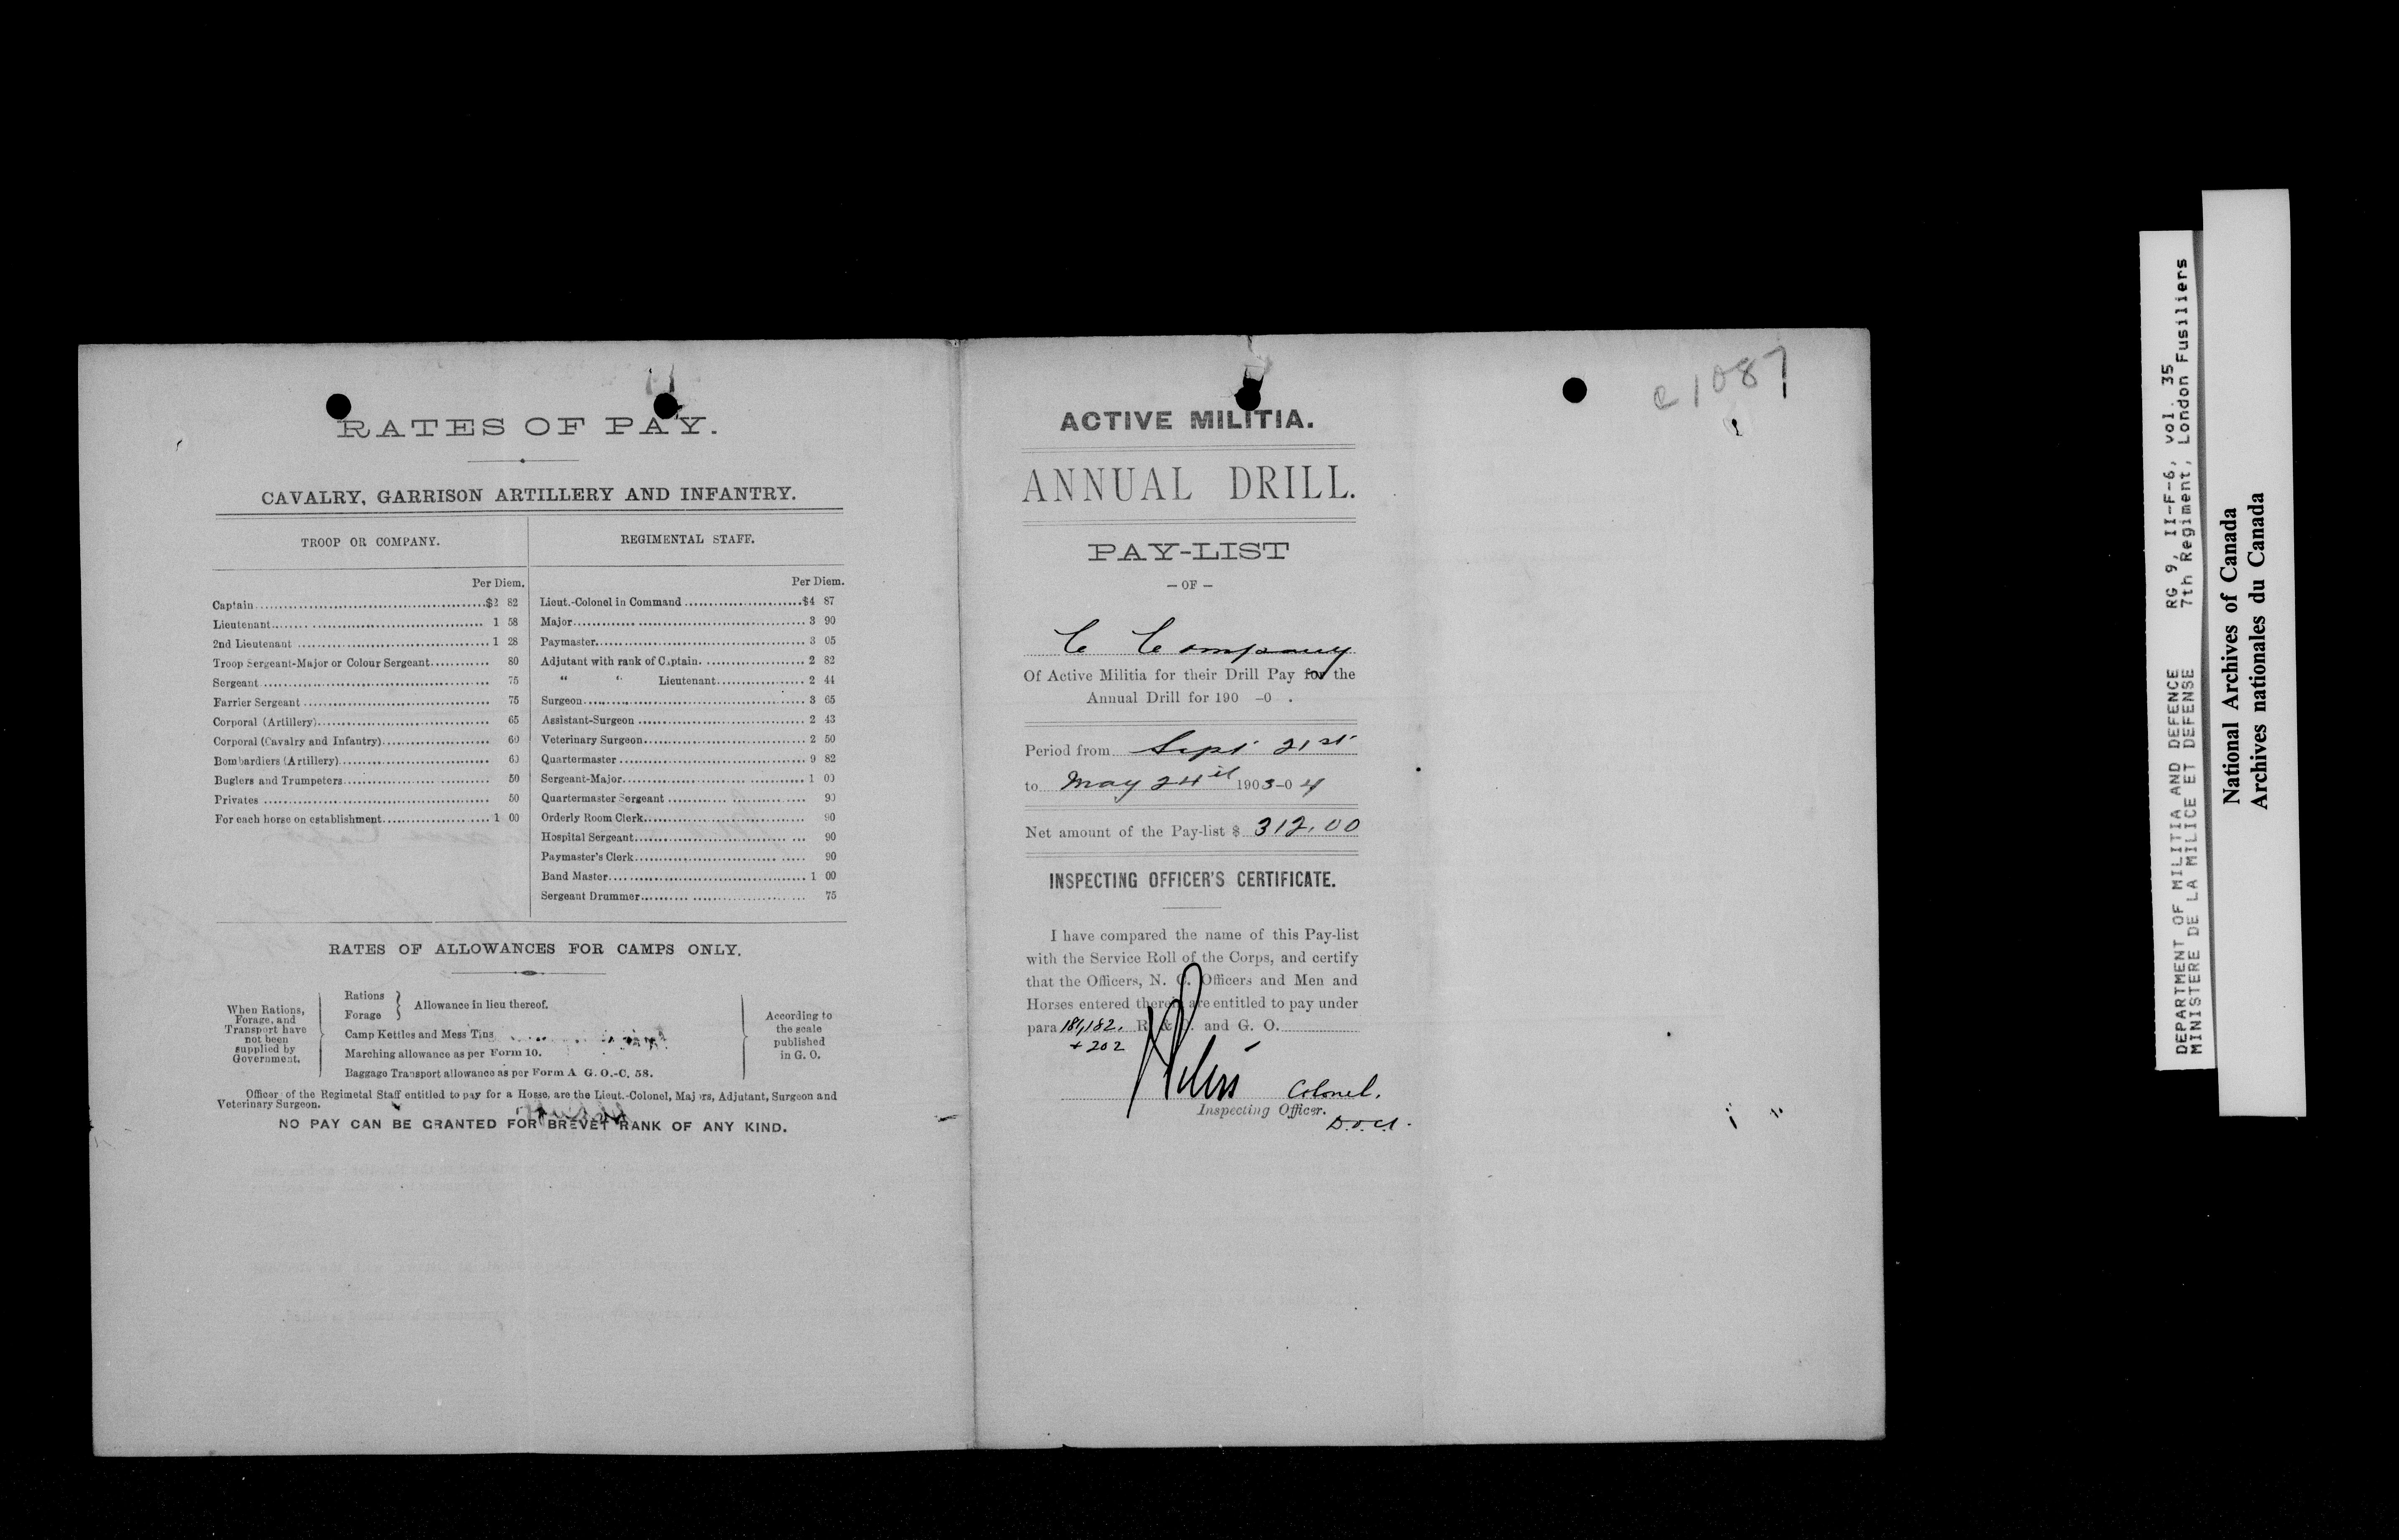 RATES OF PAY.
CAVALRY, GARRISON ARTILLERY AND INFANTRY.
TROOP OR COMPANY.
Per Diem.
Captain $2 82
Lieutenant 1 58
2nd Lieutenant 1 28
Troop Sergeant-Major or Colour Sergeant 80
Sergeant 75
Farrier Sergeant 75
Corporal (Artillery) 65
Corporal (Cavalry and Infantry) 60
Bombardiers (Artillery) 60
Buglers and Trumpeters 50
Privates 50
For each horse on establishment 1 00
REGIMENTAL STAFF.
Per Diem.
Lieut.-Colonel in Command $4 87
Major 3 90
Paymaster 3 05
Adjutant with rank of Captain 2 82
" " Lieutenant 2 44
Surgeon 3 65
Assistant-Surgeon 2 43
Veterinary Surgeon 2 50
Quartermaster 9 82
Sergeant-Major 1 00
Quartermaster Sergeant 90
Orderly Room Clerk 90
Hospital Sergeant 90
Paymaster's Clerk 90
Band Master 1 00
Sergeant Drummer 75
RATES OF ALLOWANCES FOR CAMPS ONLY.
When Rations,
Forage, and
Transport have
not been
supplied by
Government.
Rations
Forage
Allowance in lieu thereof.
Camp Kettles and Mess Tins
Marching allowance as per Form 10.
Baggage Transport allowance as per Form A G. O.-C. 58.
According to
the scale
published
in G. O.
Officer of the Regimetal Staff entitled to pay for a Hosse, are the Lieut.-Colonel, Majors, Adjutant, Surgeon and
Veterinary Surgeon.
NO PAY CAN BE GRANTED FOR BREVET RANK OF ANY KIND.
ACTIVE MILITIA.
ANNUAL DRILL.
PAY-LIST
— OF —
C Company
Of Active Militia for their Drill Pay for the
Annual Drill for 190 -0 .
Period from Sept 21st
to May 24th 1903-04
Net amount of the Pay-list $ 312.00
INSPECTING OFFICER'S CERTIFICATE.
I have compared the name of this Pay-list
with the Service Roll of the Corps, and certify
that the Officers, N. C. Officers and Men and
Horses entered therein are entitled to pay under
para 181,182. R. & O. and G. O.
+ 202
Colonel.
Inspecting Officer.
D.O.C.
c1087
DEPARTMENT OF MILITIA AND DEFENCE RG 9, II-F-6, vol. 35
MINISTERE DE LA MILICE ET DEFENSE 7th Regiment, London Fusiliers
National Archives of Canada
Archives nationales du Canada